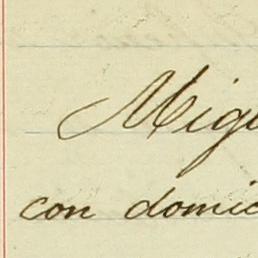 Migu
con domic